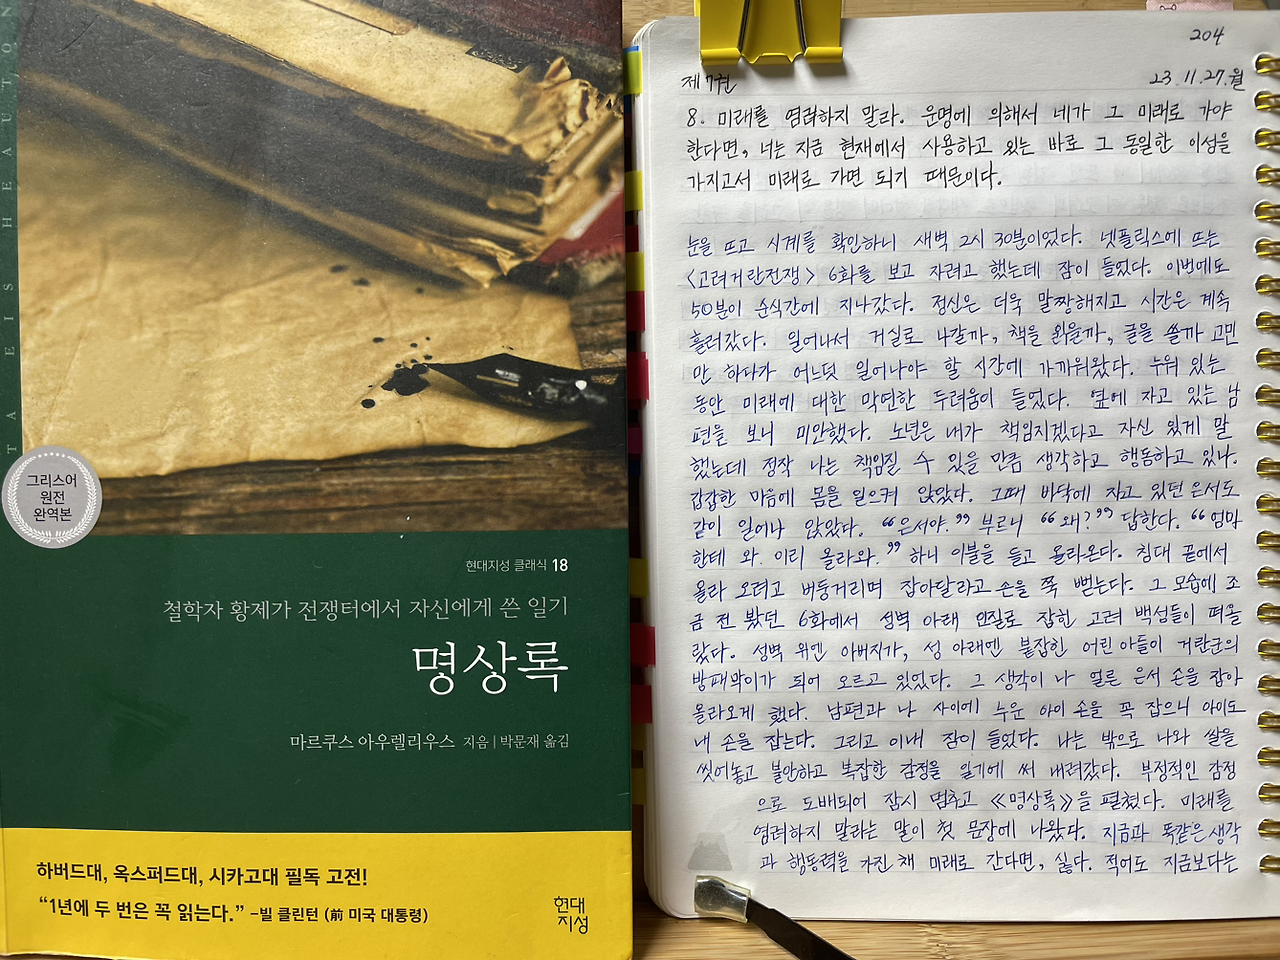 TAEISHEAUTON
그리스어
원전
완역본
현대지성 클래식 18
철학자 황제가 전쟁터에서 자신에게 쓴 일기
명상록
마르쿠스 아우렐리우스 지음 | 박문재 옮김
하버드대, 옥스퍼드대, 시카고대 필독 고전!
“1년에 두 번은 꼭 읽는다.” -빌 클린턴 (前 미국 대통령)
현대
지성
204
제7권 23.11.27.월
8. 미래를 염려하지 말라. 운명에 의해서 네가 그 미래로 가야
한다면, 너는 지금 현재에서 사용하고 있는 바로 그 동일한 이성을
가지고서 미래로 가면 되기 때문이다.
눈을 뜨고 시계를 확인하니 새벽 2시 30분이었다. 넷플릭스에 뜨는
<고려거란전쟁> 6화를 보고 자려고 했는데 잠이 들었다. 이번에도
50분이 순식간에 지나갔다. 정신은 더욱 말짱해지고 시간은 계속
흘러갔다. 일어나서 거실로 나갈까, 책을 읽을까, 글을 쓸까 고민
만 하다가 어느덧 일어나야 할 시간에 가까워왔다. 누워 있는
동안 미래에 대한 막연한 두려움이 들었다. 옆에 자고 있는 남
편을 보니 미안했다. 노년은 내가 책임지겠다고 자신 있게 말
했는데 정작 나는 책임질 수 있을 만큼 생각하고 행동하고 있나.
갑갑한 마음에 몸을 일으켜 앉았다. 그때 바닥에 자고 있던 은서도
같이 일어나 앉았다. “은서야.” 부르니 “왜?” 답한다. “엄마
한테 와. 이리 올라와.” 하니 이불을 들고 올라온다. 침대 끝에서
올라 오려고 버둥거리며 잡아달라고 손을 쭉 뻗는다. 그 모습에 조
금 전 봤던 6화에서 성벽 아래 인질로 잡힌 고려 백성들이 떠올
랐다. 성벽 위엔 아버지가, 성 아래엔 붙잡힌 어린 아들이 거란군의
방패막이가 되어 오르고 있었다. 그 생각이 나 얼른 은서 손을 잡아
올라오게 했다. 남편과 나 사이에 누운 아이 손을 꼭 잡으니 아이도
내 손을 잡는다. 그리고 이내 잠이 들었다. 나는 밖으로 나와 쌀을
씻어놓고 불안하고 복잡한 감정을 일기에 써 내려갔다. 부정적인 감정
으로 도배되어 잠시 멈추고 《명상록》을 펼쳤다. 미래를
염려하지 말라는 말이 첫 문장에 나왔다. 지금과 똑같은 생각
과 행동력을 가진 채 미래로 간다면, 싫다. 적어도 지금보다는